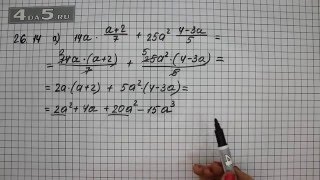 4DA5.RU
26.14 a) 14a · (a+2)/7 + 25a² · (4-3a)/5 =
= ²14a·(a+2)/7 + ⁵25a²·(4-3a)/5 =
= 2a·(a+2) + 5a²·(4-3a) =
= 2a² + 4a + 20a² - 15a³